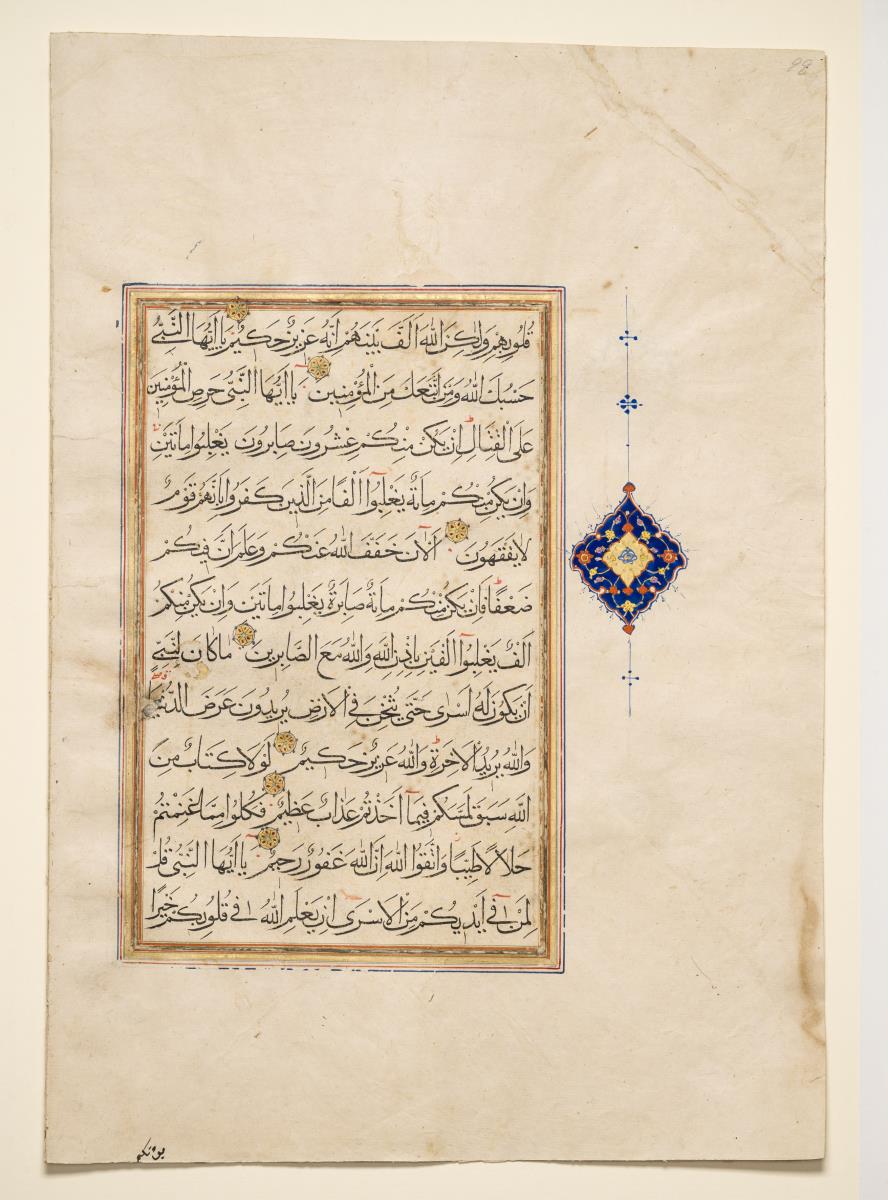 قُلُوبِهِمْ وَلٰكِنَّ اللهَ اَلَّفَ بَيْنَهُمْ اِنَّهُ عَزِيزٌ حَكِيمٌ يَا اَيُّهَا النَّبِيُّ
حَسْبُكَ اللهُ وَمَنِ اتَّبَعَكَ مِنَ الْمُؤْمِنِينَ يَا اَيُّهَا النَّبِيُّ حَرِّضِ الْمُؤْمِنِينَ
عَلَى الْقِتَالِ اِنْ يَكُنْ مِنْكُمْ عِشْرُونَ صَابِرُونَ يَغْلِبُوا مِاَتَيْنِ
وَاِنْ يَكُنْ مِنْكُمْ مِاَةٌ يَغْلِبُوا اَلْفًا مِنَ الَّذِينَ كَفَرُوا بِاَنَّهُمْ قَوْمٌ
لَا يَفْقَهُونَ اَلْاٰنَ خَفَّفَ اللهُ عَنْكُمْ وَعَلِمَ اَنَّ فِيكُمْ
ضَعْفًا فَاِنْ يَكُنْ مِنْكُمْ مِاَةٌ صَابِرَةٌ يَغْلِبُوا مِاَتَيْنِ وَاِنْ يَكُنْ مِنْكُمْ
اَلْفٌ يَغْلِبُوا اَلْفَيْنِ بِاِذْنِ اللهِ وَاللهُ مَعَ الصَّابِرِينَ مَا كَانَ لِنَبِيٍّ
اَنْ يَكُونَ لَهُ اَسْرٰى حَتّٰى يُثْخِنَ فِي الْاَرْضِ تُرِيدُونَ عَرَضَ الدُّنْيَا
وَاللهُ يُرِيدُ الْاٰخِرَةَ وَاللهُ عَزِيزٌ حَكِيمٌ لَوْلَا كِتَابٌ مِنَ
اللهِ سَبَقَ لَمَسَّكُمْ فِيمَا اَخَذْتُمْ عَذَابٌ عَظِيمٌ فَكُلُوا مِمَّا غَنِمْتُمْ
حَلَالًا طَيِّبًا وَاتَّقُوا اللهَ اِنَّ اللهَ غَفُورٌ رَحِيمٌ يَا اَيُّهَا النَّبِيُّ قُلْ
لِمَنْ فِي اَيْدِيكُمْ مِنَ الْاَسْرٰى اِنْ يَعْلَمِ اللهُ فِي قُلُوبِكُمْ خَيْرًا
يؤتكم